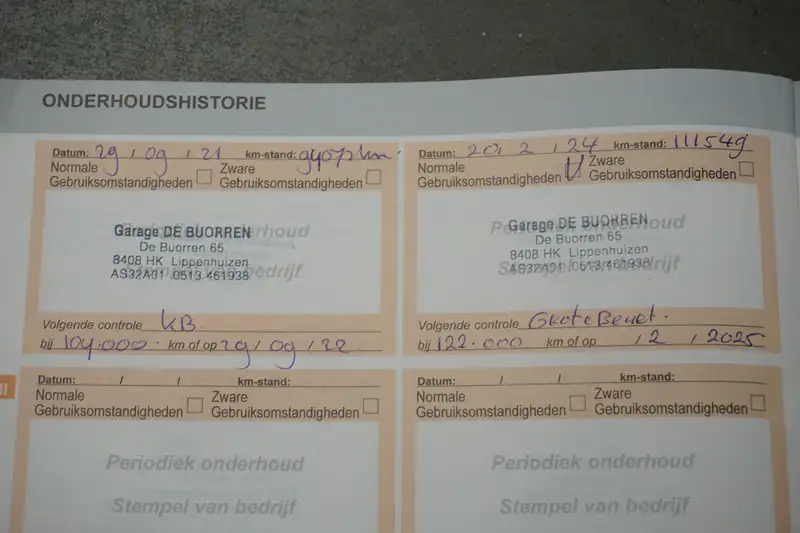 ONDERHOUDSHISTORIE
Datum: 29 / 09 / 21 km-stand: 94072 km.
Normale Gebruiksomstandigheden Zware Gebruiksomstandigheden
Periodiek onderhoud
Stempel van bedrijf
Garage DE BUORREN
De Buorren 65
8408 HK Lippenhuizen
AS32A01 0513 461938
Volgende controle KB
bij 104.000 km of op 29 / 09 / 22
Datum: 20 / 2 / 24 km-stand: 111549
Normale Gebruiksomstandigheden Zware Gebruiksomstandigheden
Periodiek onderhoud
Stempel van bedrijf
Garage DE BUORREN
De Buorren 65
8408 HK Lippenhuizen
AS32A01 0513 461938
Volgende controle Grote Beurt.
bij 122.000 km of op / 2 / 2025
Datum: / / km-stand:
Normale Gebruiksomstandigheden Zware Gebruiksomstandigheden
Periodiek onderhoud
Stempel van bedrijf
Datum: / / km-stand:
Normale Gebruiksomstandigheden Zware Gebruiksomstandigheden
Periodiek onderhoud
Stempel van bedrijf